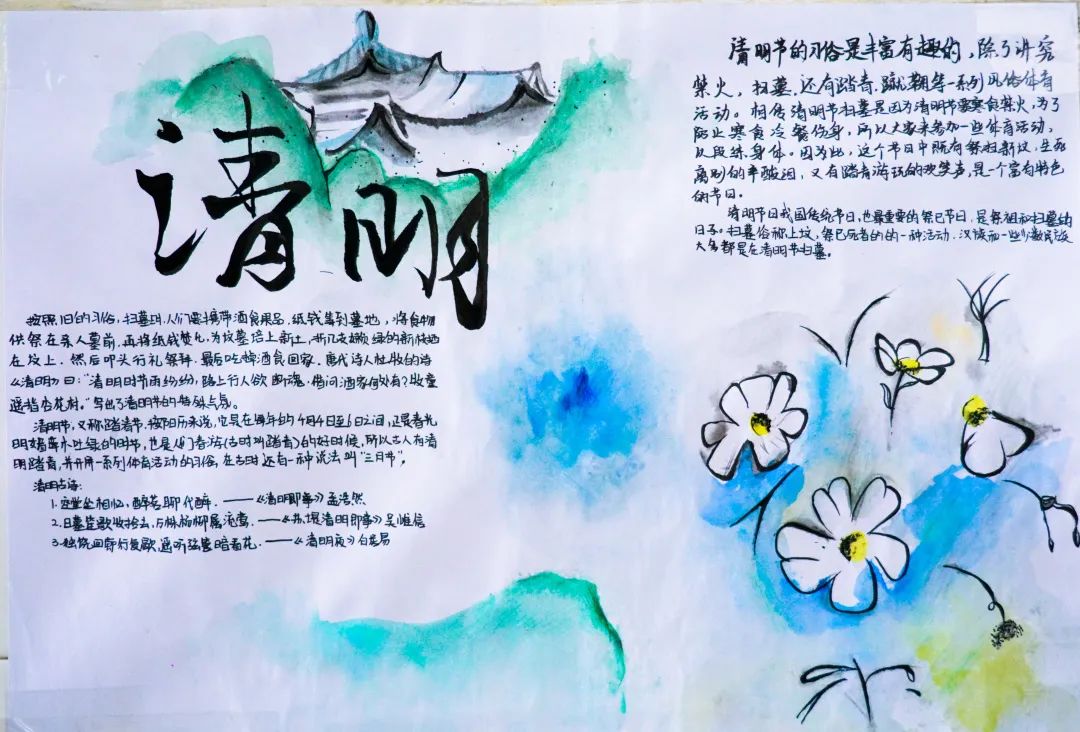 清明
清明节的习俗是丰富有趣的，除了讲究
禁火，扫墓，还有踏青，蹴鞠等一系列风俗体育
活动。相传清明节扫墓是因为清明节要寒食禁火，为了
防止寒食冷餐伤身，所以大家来参加一些体育活动，
以段练身体。因为此，这个节日中既有祭扫新坟，生死
离别的辛酸泪，又有踏青游玩的欢笑声，是一个富有特色
的节日。
清明节日我国传统节日，也最重要的祭巳节日，是祭祖和扫墓的
日子。扫墓俗称上坟，祭巳死者的的一种活动。汉族和一些少数民族
大多都是在清明节扫墓。
按照旧的习俗，扫墓时，人们要携带酒食果品，纸钱等到墓地，将食物
供祭在亲人墓前，再将纸钱焚化，为坟墓培上新土，折几支嫩绿的新枝插
在坟上，然后叩头行礼祭拜，最后吃掉酒食回家。唐代诗人杜牧的诗
《清明》曰："清明时节雨纷纷，路上行人欲断魂。借问酒家何处有？牧童
遥指杏花村。"写出了清明节的特殊气氛。
清明节，又称踏青节，按阳历来说，它是在每年的4月4日至6日之间，正是春光
明媚草木吐绿的时节，也是人们春游(古时叫踏青)的好时候，所以古人有清
明踏青，并开展一系列体育活动的习俗，在古时还有一种说法叫"三月节"。
清明古诗：
1.空堂坐相忆，酌茗聊代醉。——《清明即事》孟浩然
2.日暮笙歌收拾去，万株杨柳属流莺。——《苏堤清明即事》吴惟信
3.独绕回廊行复歇，遥听弦管暗看花。——《清明夜》白居易